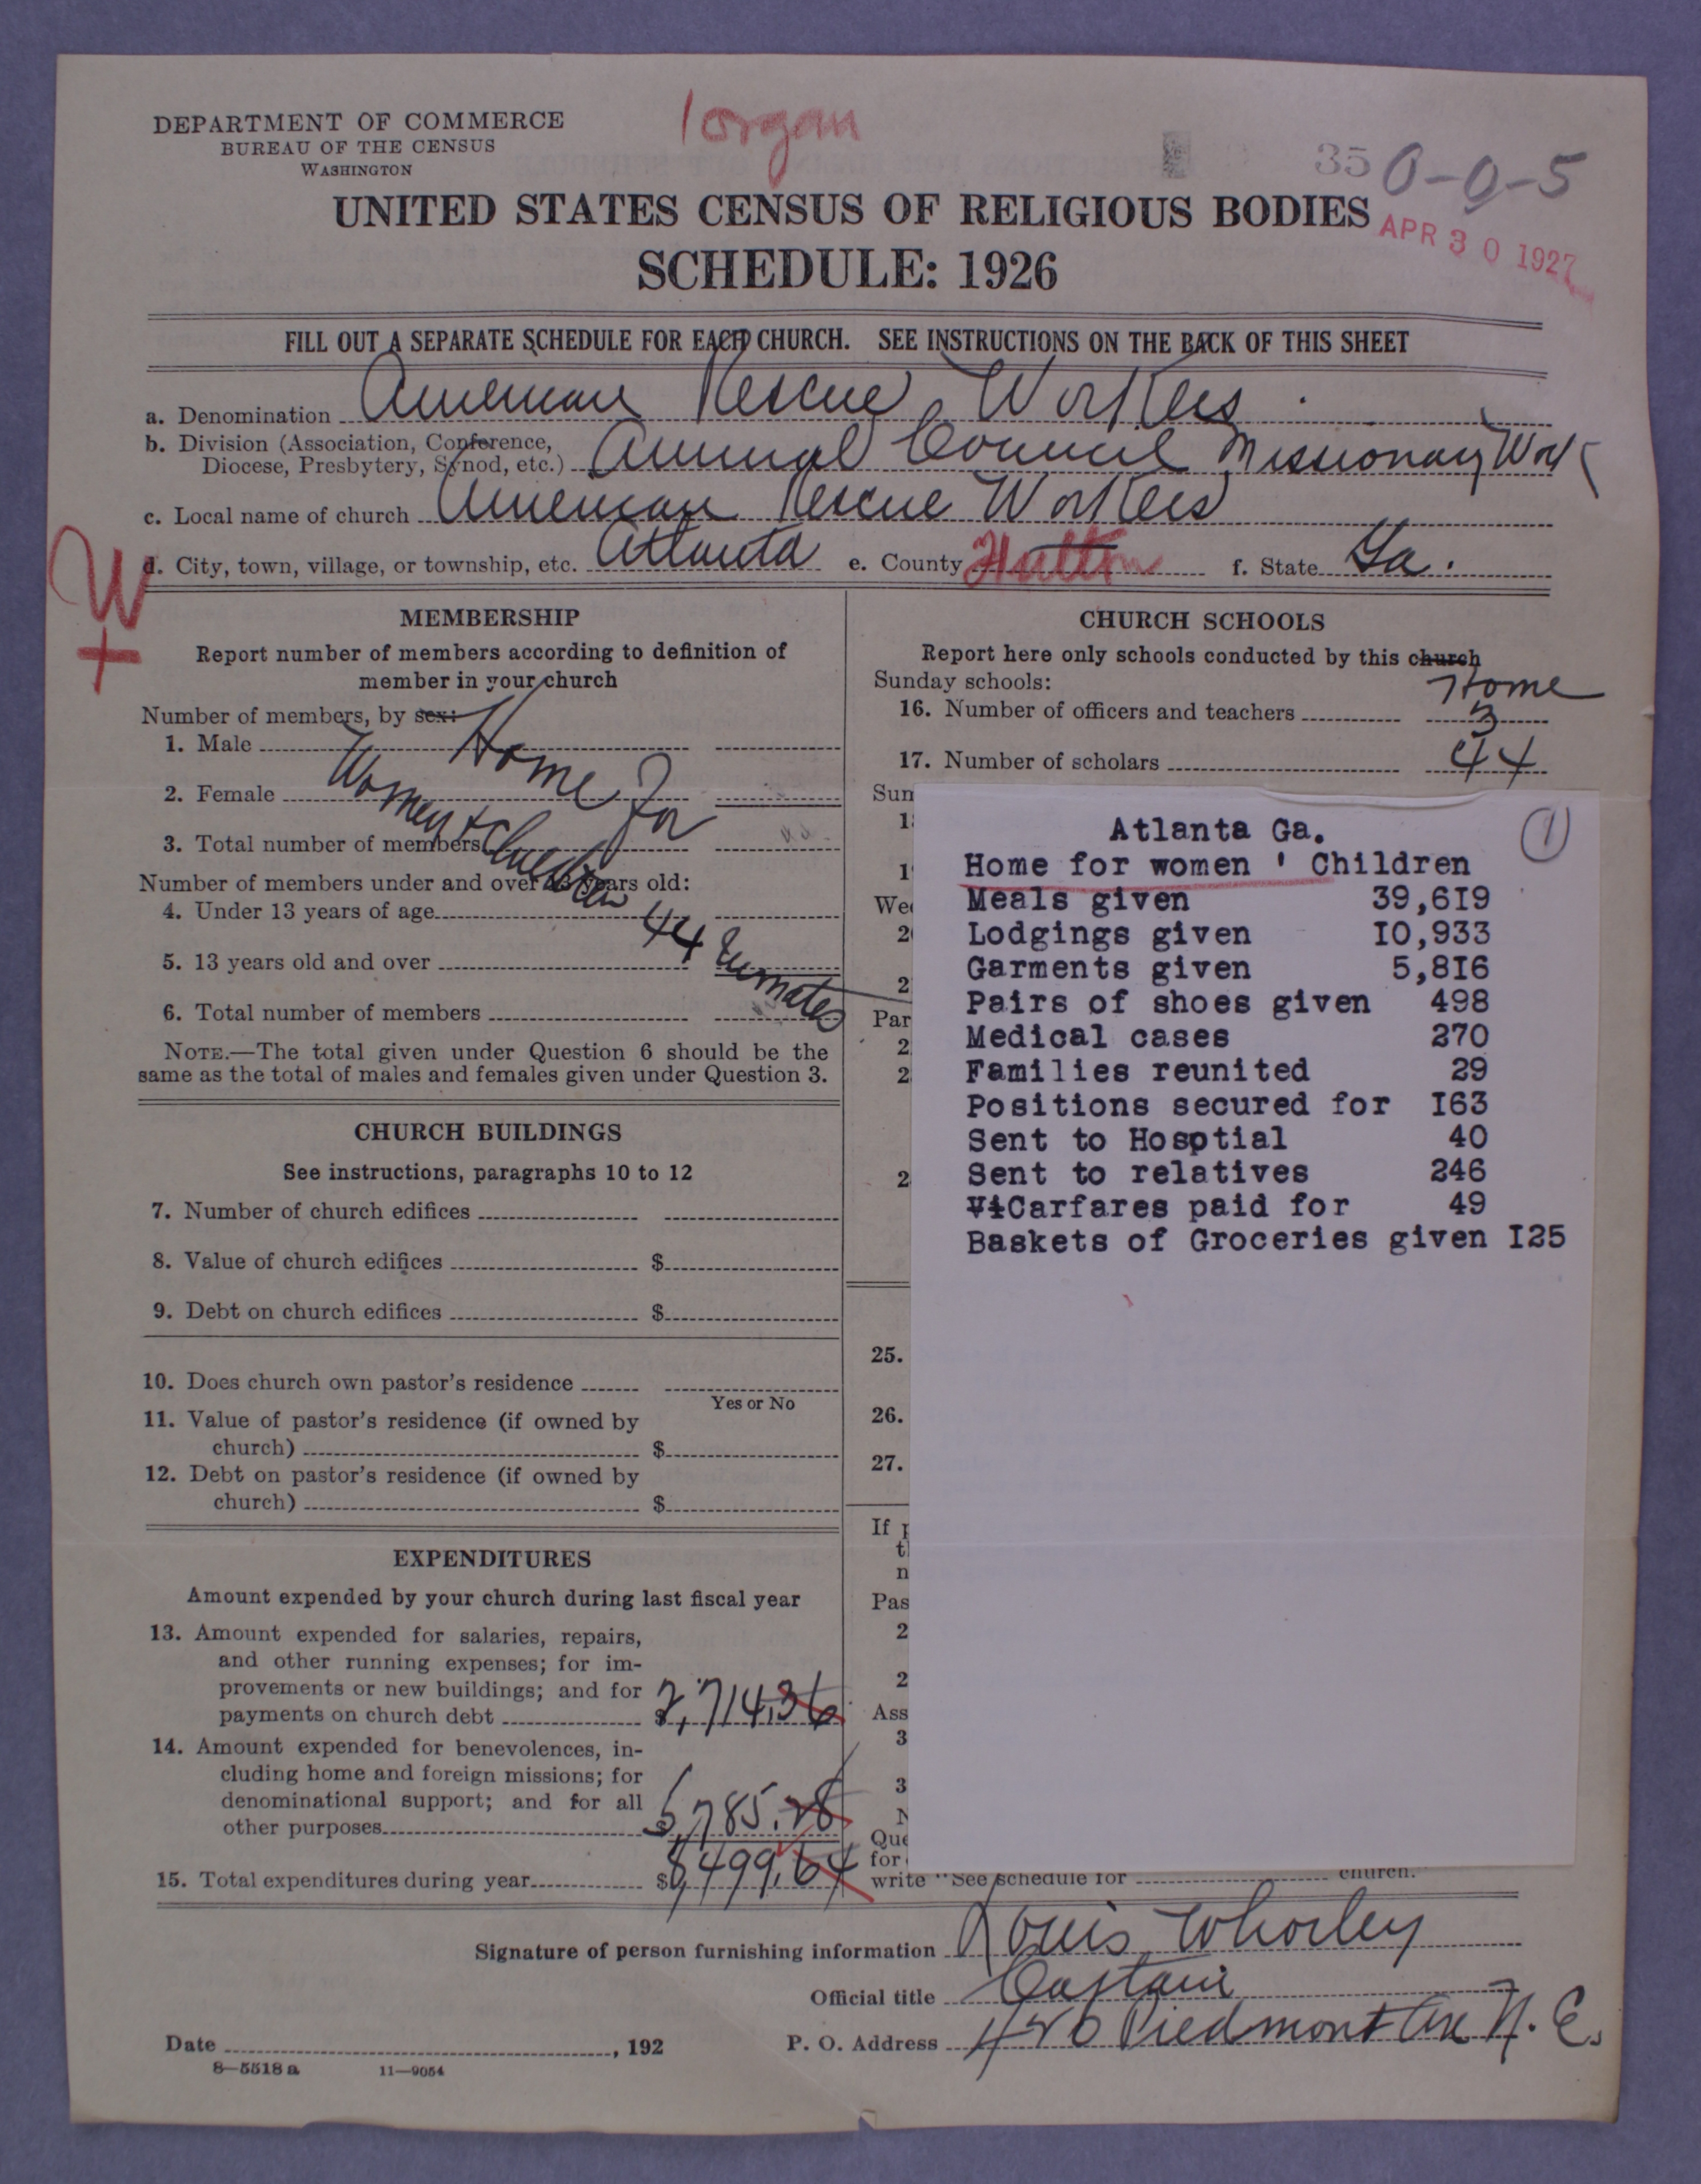 DEPARTMENT OF COMMERCE
BUREAU OF THE CENSUS
WASHINGTON
1 organ
35
0-0-5
APR 30 1927
UNITED STATES CENSUS OF RELIGIOUS BODIES
SCHEDULE: 1926
FILL OUT A SEPARATE SCHEDULE FOR EACH CHURCH. SEE INSTRUCTIONS ON THE BACK OF THIS SHEET
a. Denomination American Rescue Workers.
b. Division (Association, Conference,
Diocese, Presbytery, Synod, etc.) Annual Council Missionary Work
c. Local name of church American Rescue Workers
d. City, town, village, or township, etc. Atlanta e. County Fulton f. State Ga.
W
+
MEMBERSHIP
Report number of members according to definition of
member in your church
Number of members, by sex:
1. Male
2. Female
3. Total number of members
Number of members under and over 13 years old:
4. Under 13 years of age
5. 13 years old and over
6. Total number of members
Home For
Women & Children
44 Inmates
NOTE.—The total given under Question 6 should be the
same as the total of males and females given under Question 3.
CHURCH BUILDINGS
See instructions, paragraphs 10 to 12
7. Number of church edifices
8. Value of church edifices $
9. Debt on church edifices $
10. Does church own pastor's residence
Yes or No
11. Value of pastor's residence (if owned by
church) $
12. Debt on pastor's residence (if owned by
church) $
EXPENDITURES
Amount expended by your church during last fiscal year
13. Amount expended for salaries, repairs,
and other running expenses; for im-
provements or new buildings; and for
payments on church debt $2,714.36
14. Amount expended for benevolences, in-
cluding home and foreign missions; for
denominational support; and for all
other purposes 5,785.28
15. Total expenditures during year $8,499.64
CHURCH SCHOOLS
Report here only schools conducted by this church
Home
Sunday schools:
16. Number of officers and teachers 3
17. Number of scholars 44
Sun
1
1
Wee
2
2
Par
2
2
2
25.
26.
27.
If
t
n
Pas
2
2
Ass
3
3
N
Que
for
write "See schedule for church."
Atlanta Ga.
1
Home for women ' Children
Meals given 39,6I9
Lodgings given I0,933
Garments given 5,8I6
Pairs of shoes given 498
Medical cases 270
Families reunited 29
Positions secured for I63
Sent to Hosptial 40
Sent to relatives 246
ViCarfares paid for 49
Baskets of Groceries given I25
Signature of person furnishing information Louis Whorley
Official title Captain
Date , 192
P. O. Address 426 Piedmont Ave N. E.
8—5518 a 11—9054